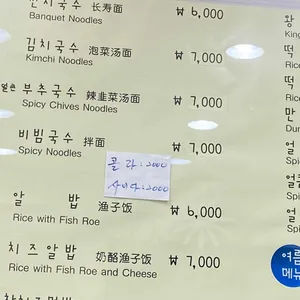 잔치국수 长寿面 ₩ 6,000
Banquet Noodles
김치국수 泡菜汤面 ₩ 7,000
Kimchi Noodles
얼큰 부추국수 辣韭菜汤面 ₩ 7,000
Spicy Chives Noodles
비빔국수 拌面 ₩ 7,000
Spicy Noodles
콜라:2000
사이다:2000
알 밥 渔子饭 ₩ 6,000
Rice with Fish Roe
치즈알밥 奶酪渔子饭 ₩ 7,000
Rice with Fish Roe and Cheese
왕
King
떡
Rice
떡
Rice
만
Dum
얼
Spi
얼큰
Spi
얼
Spi
여름
메뉴